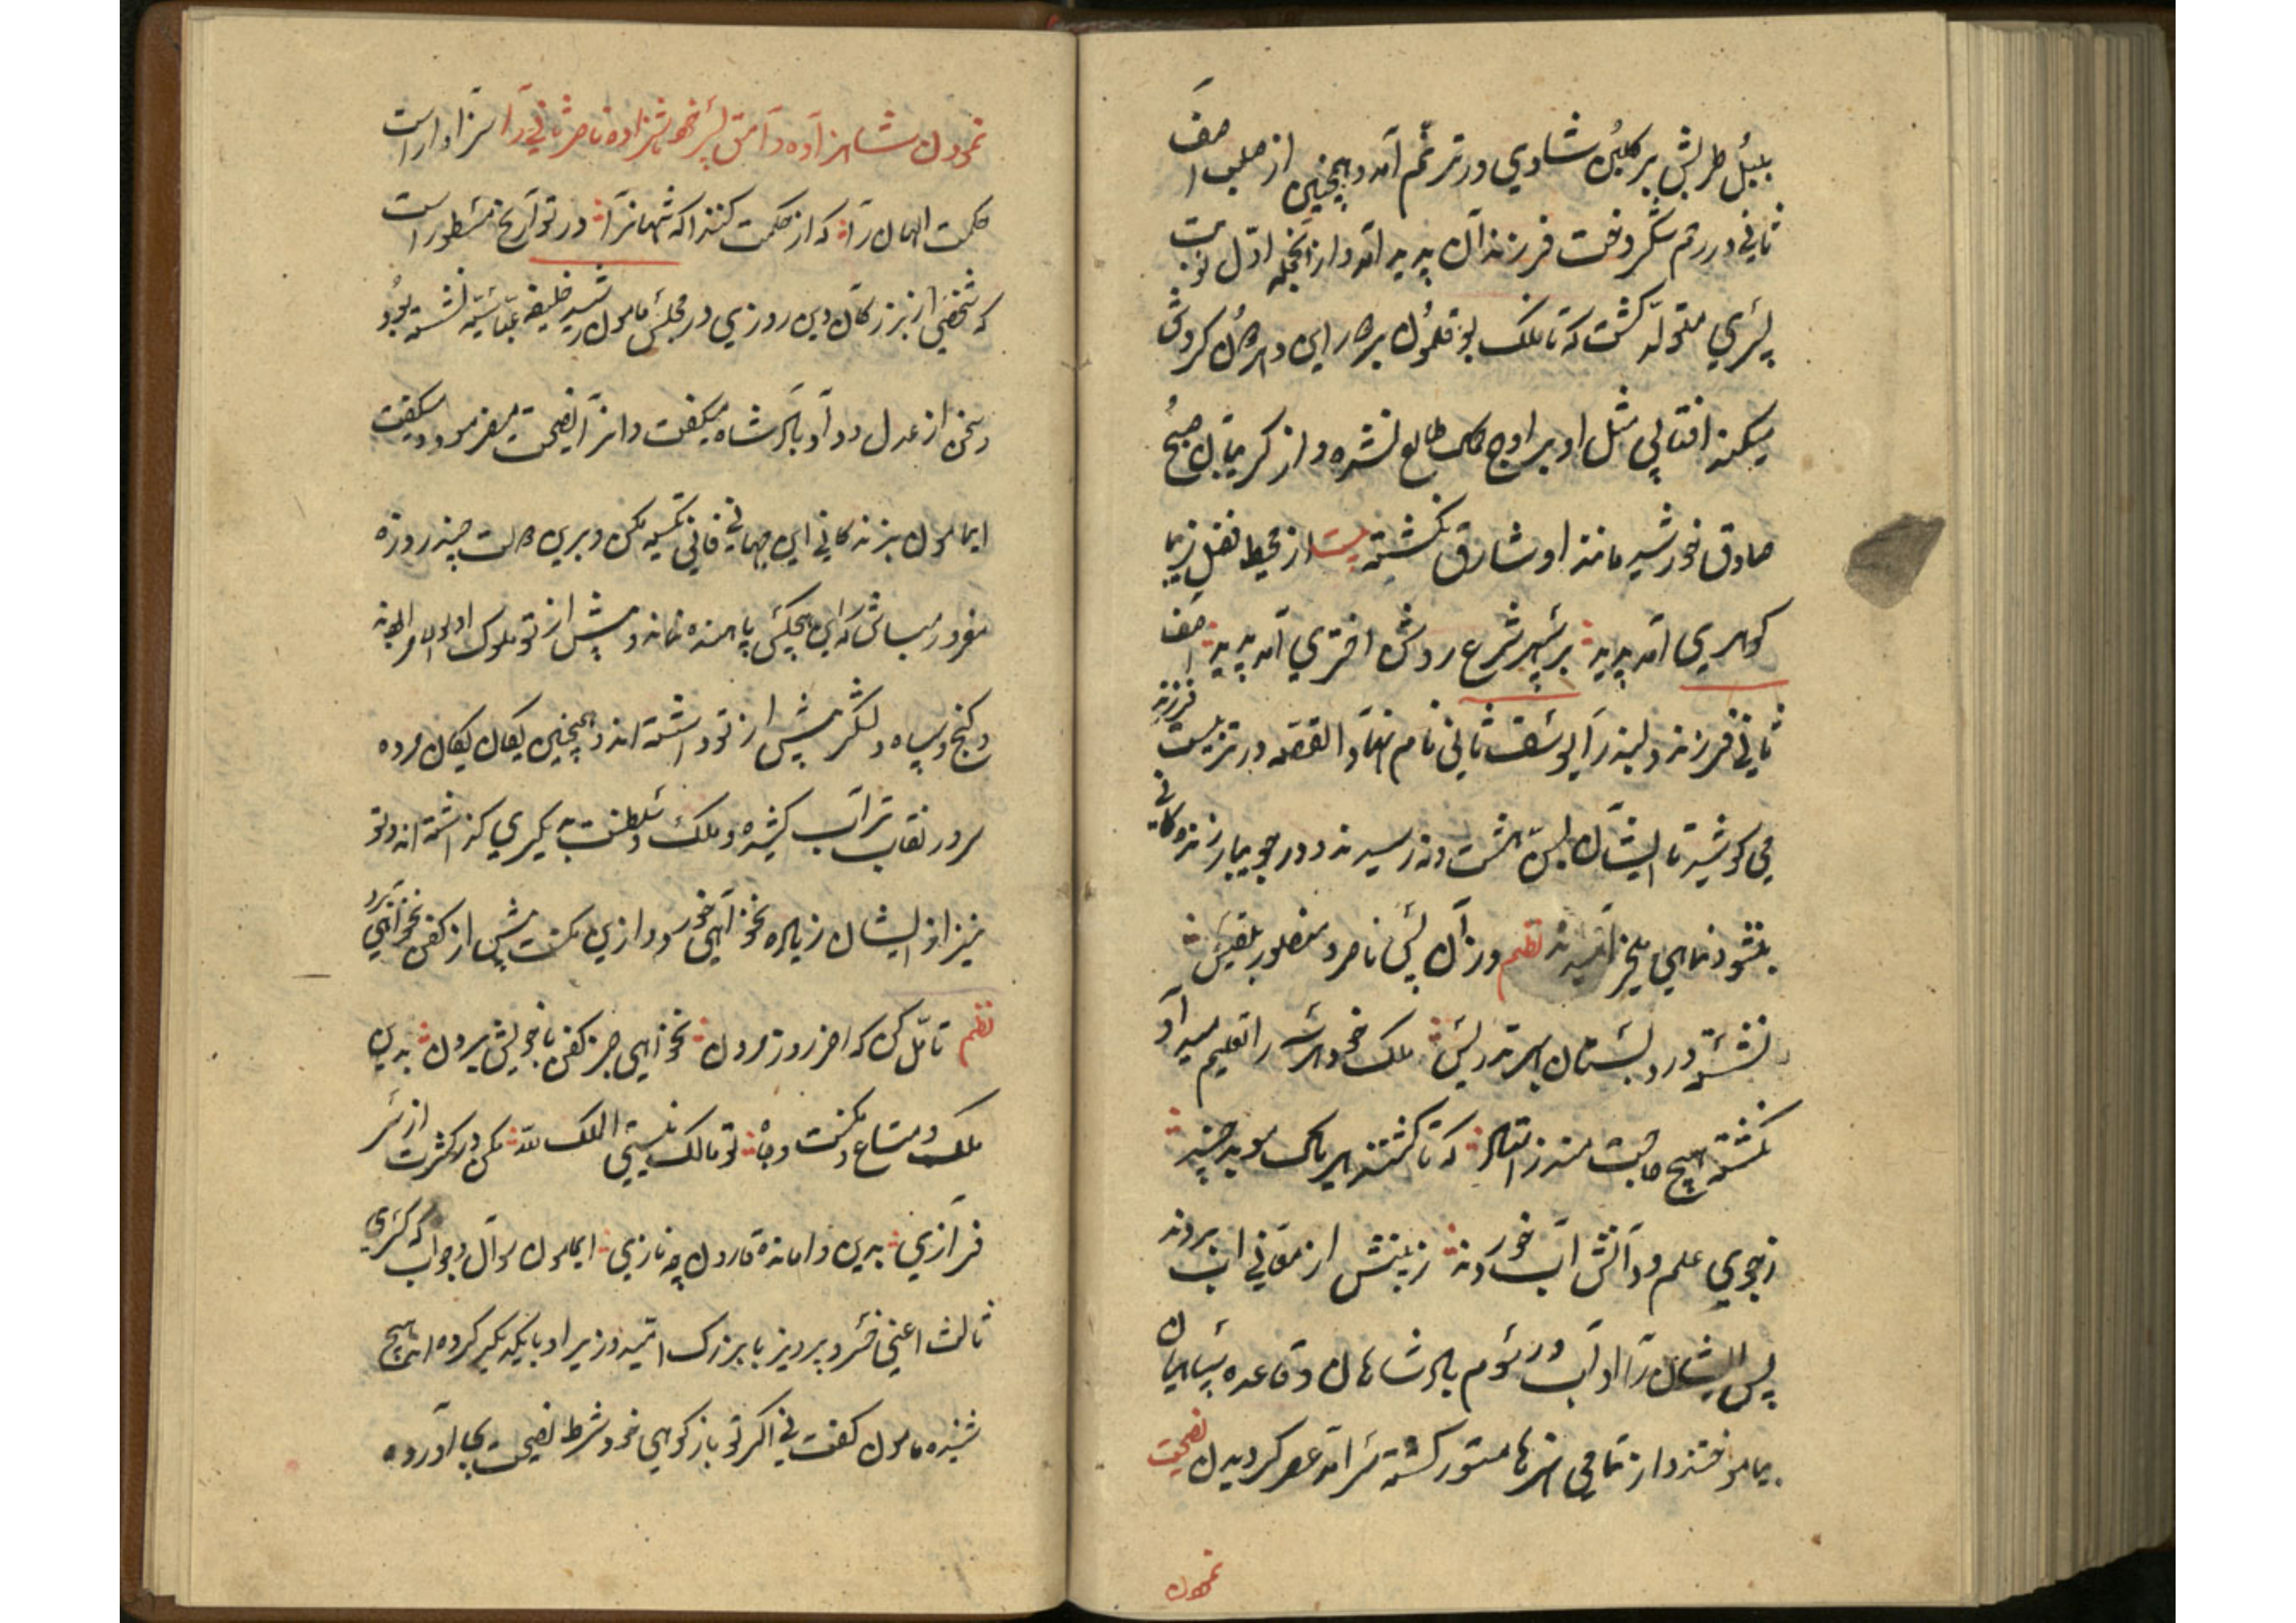 بلبل طربش بر گلبن شادی در ترنم آمد و همچنین از صلب آصف
ثانی در رقم شکر وقت فرزندان پدید آمد و از آنجمله اول نوبت
پسری متولد گشت که تا ملک بوقلمون
میکند آفتابی مثل او بر اوج طالع نشده و از کریبان صبح
صادق خورشید مانند او شارق نکشته بیت از محیط فضل زیبا
کوهری آمد پدید بر سپهر شرع روشن اختری آمد پدید آصف
ثانی فرزند دلبند را یوسف ثانی نام نهاد القصه در تربیت فرزند
می کوشید تا ایشان بسن هشت رسیدند و در جویبار زندکانی
بنشوونمای آمدند نظم وز آن پس ناصر و منصور بلقیس
نشسته در دبستان بهر تدریس ملک خود را تعلیم میداد
نکشته هیچ که تا کشتند هر یک موبد چند
ز جوی علم و دانش آب خوردند ز بینش از معانی آب بردند
پس ایشان را آداب و رسوم بادشاهان و قاعده سپاهیان
بیاموختند و از تمامی هنرها مستور کشته سرآمد عصر کردیدن نصیحت
نمودن
نمودن شاهزاده وامق پسر خود شاهزاده ناصر ثانی را سزاوار است
حکمت الهی آن را که از حکمت کند اکه شهانرا در تواریخ مسطور است
که شخصی از بزرکان دین روزی در مجلس مامون رشید خلیفه عباسیه نشسته بود
و سخن از عدل و داد بادشاه میکفت و انرا نصیحت میفرمود و میکفت
ای مامون بزندکانی این جهان فانی تکیه مکن و برین دولت چند روزه
مغرور مباش که این بهیچکس پاینده نماند و پیش از تو ملوک اولوالامر
و کنج و سپاه و لشکر پیش از تو داشته اند و همچنین یکان یکان مرده
سر در نقاب تراب کشیده و ملک و سلطنت به دیکری کذاشته اند و تو
نیز از ایشان زیاده نخواهی خورد و ازین مکنت بیش از کفن نخواهی برد
نظم تامل کن که آخر روز مردن نخواهی جز کفن با خویش بردن بدین
ملک و متاع و مکنت و جاه تو مالک نیستی الملک لله مکن در کثرت از سر
فرازی بدین وامانده قارون چه نازی ای مامون سوال و جواب که کسری
ثالث اعنی خسرو پرویز با بزرک امید وزیر او با یکدیکر کرده اند هیچ
شنیده مامون کفت نی اکر تو باز کویی خود شرط نصیحت بجا آورده